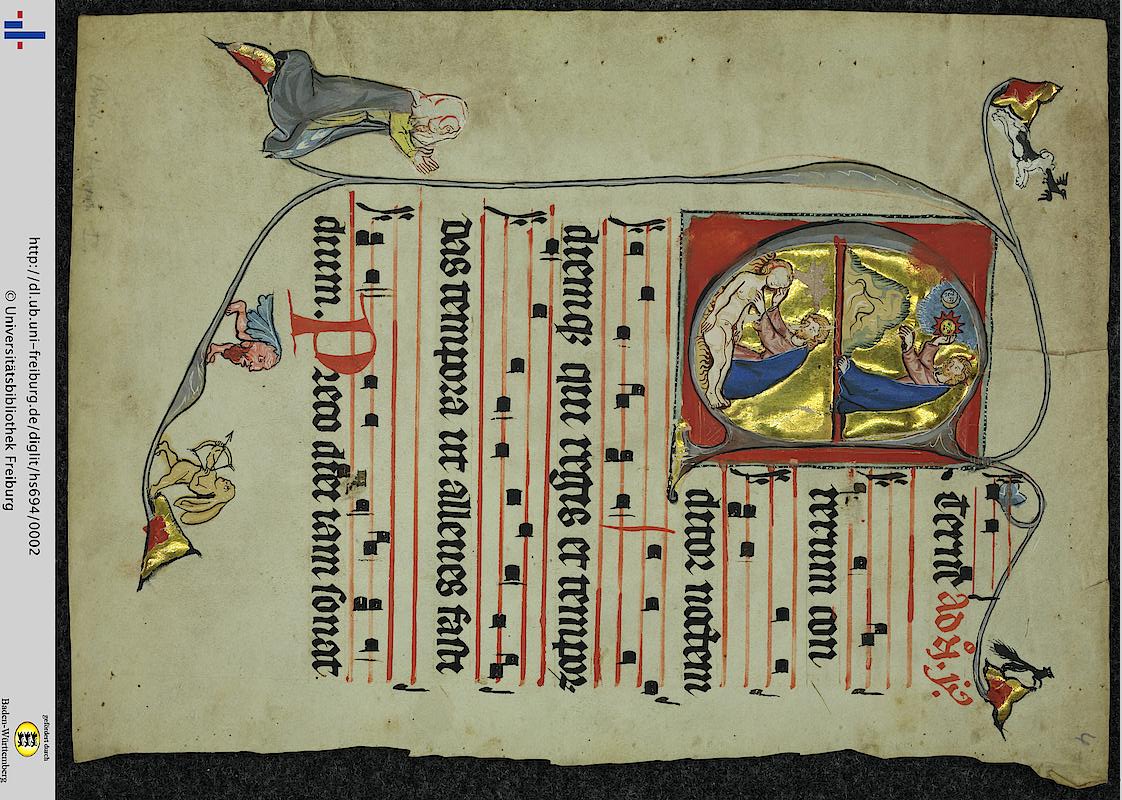 Eterne ad
rerum con
ditor noctem
diemqꝫ qui regis et temporꝝ
das tempora ut alleues fasti
dium. Preco diei iam sonat
4
http://dl.ub.uni-freiburg.de/diglit/hs694/0002
© Universitätsbibliothek Freiburg
gefördert durch
Baden-Württemberg